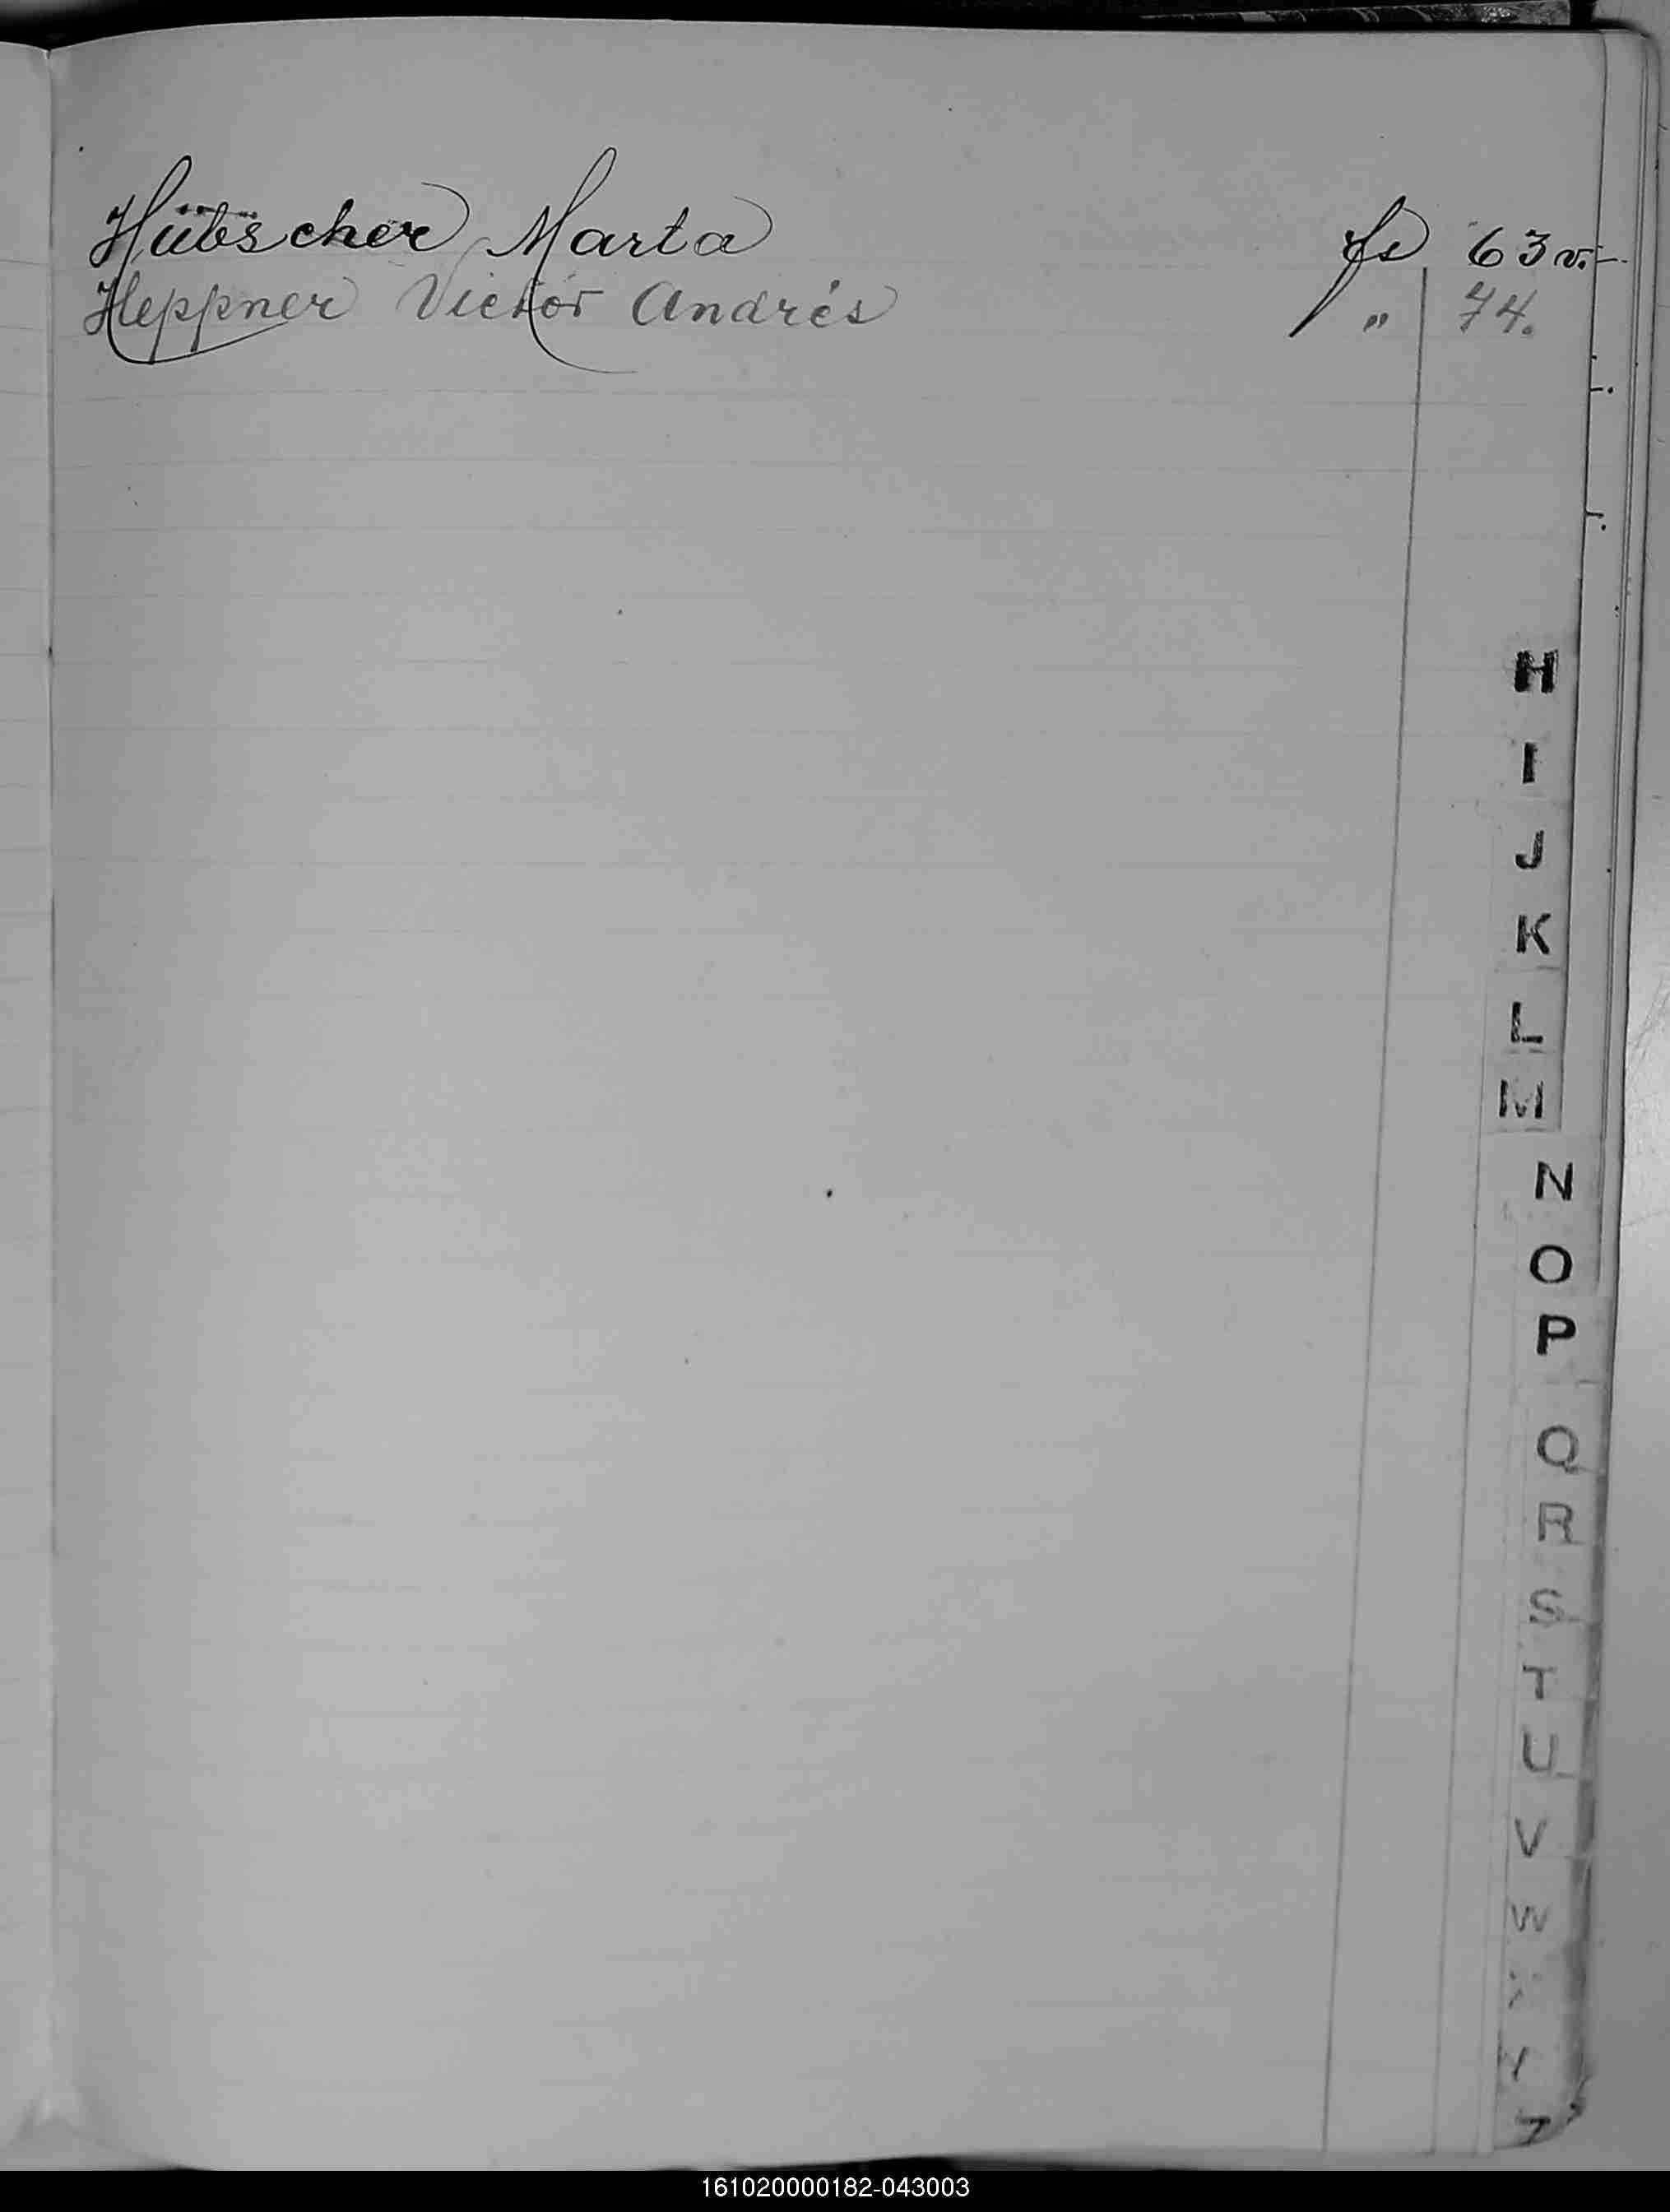 Hübscher Marta fs 63 v.
Heppner Victor Andrés " 74.
H
I
J
K
L
M
N
O
P
Q
R
S
T
U
V
W
Y
Z
161020000182-043003